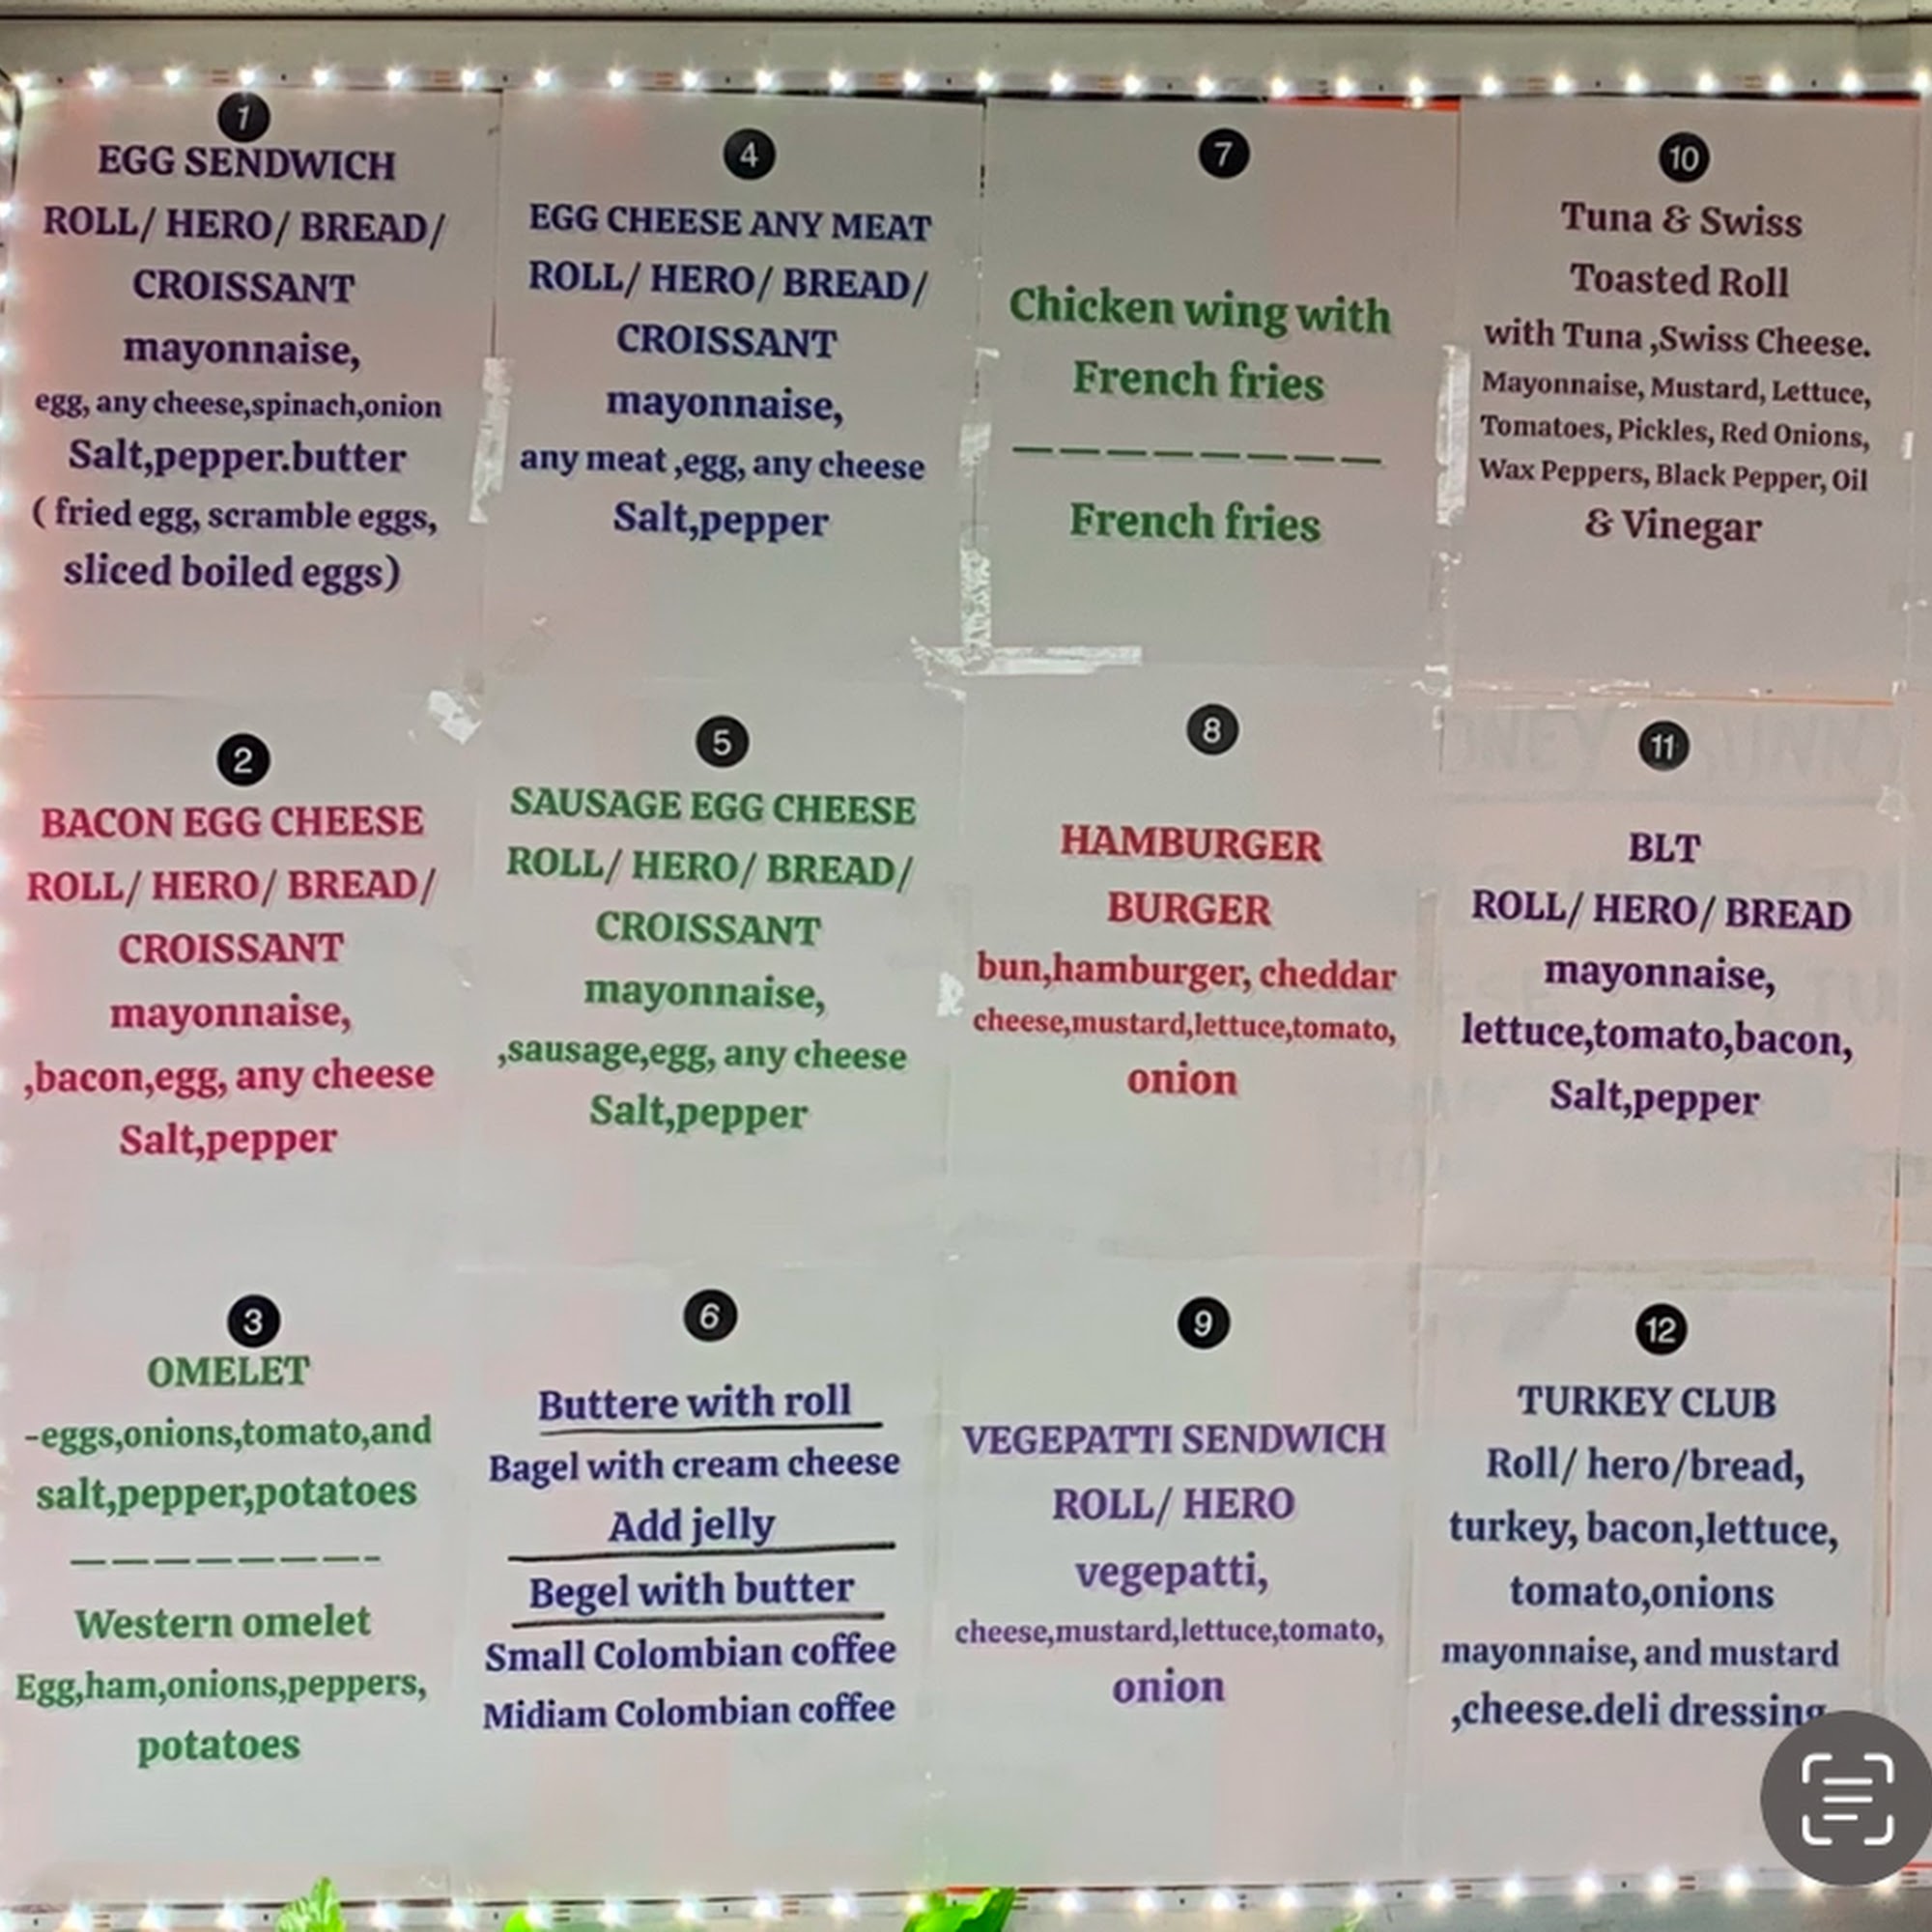 1
EGG SENDWICH
ROLL/ HERO/ BREAD/
CROISSANT
mayonnaise,
egg, any cheese,spinach,onion
Salt,pepper.butter
( fried egg, scramble eggs,
sliced boiled eggs)
2
BACON EGG CHEESE
ROLL/ HERO/ BREAD/
CROISSANT
mayonnaise,
,bacon,egg, any cheese
Salt,pepper
3
OMELET
-eggs,onions,tomato,and
salt,pepper,potatoes
————————-
Western omelet
Egg,ham,onions,peppers,
potatoes
4
EGG CHEESE ANY MEAT
ROLL/ HERO/ BREAD/
CROISSANT
mayonnaise,
any meat ,egg, any cheese
Salt,pepper
5
SAUSAGE EGG CHEESE
ROLL/ HERO/ BREAD/
CROISSANT
mayonnaise,
,sausage,egg, any cheese
Salt,pepper
6
Buttere with roll
Bagel with cream cheese
Add jelly
Begel with butter
Small Colombian coffee
Midiam Colombian coffee
7
Chicken wing with
French fries
—————————
French fries
8
HAMBURGER
BURGER
bun,hamburger, cheddar
cheese,mustard,lettuce,tomato,
onion
9
VEGEPATTI SENDWICH
ROLL/ HERO
vegepatti,
cheese,mustard,lettuce,tomato,
onion
10
Tuna & Swiss
Toasted Roll
with Tuna ,Swiss Cheese.
Mayonnaise, Mustard, Lettuce,
Tomatoes, Pickles, Red Onions,
Wax Peppers, Black Pepper, Oil
& Vinegar
11
BLT
ROLL/ HERO/ BREAD
mayonnaise,
lettuce,tomato,bacon,
Salt,pepper
12
TURKEY CLUB
Roll/ hero/bread,
turkey, bacon,lettuce,
tomato,onions
mayonnaise, and mustard
,cheese.deli dressing